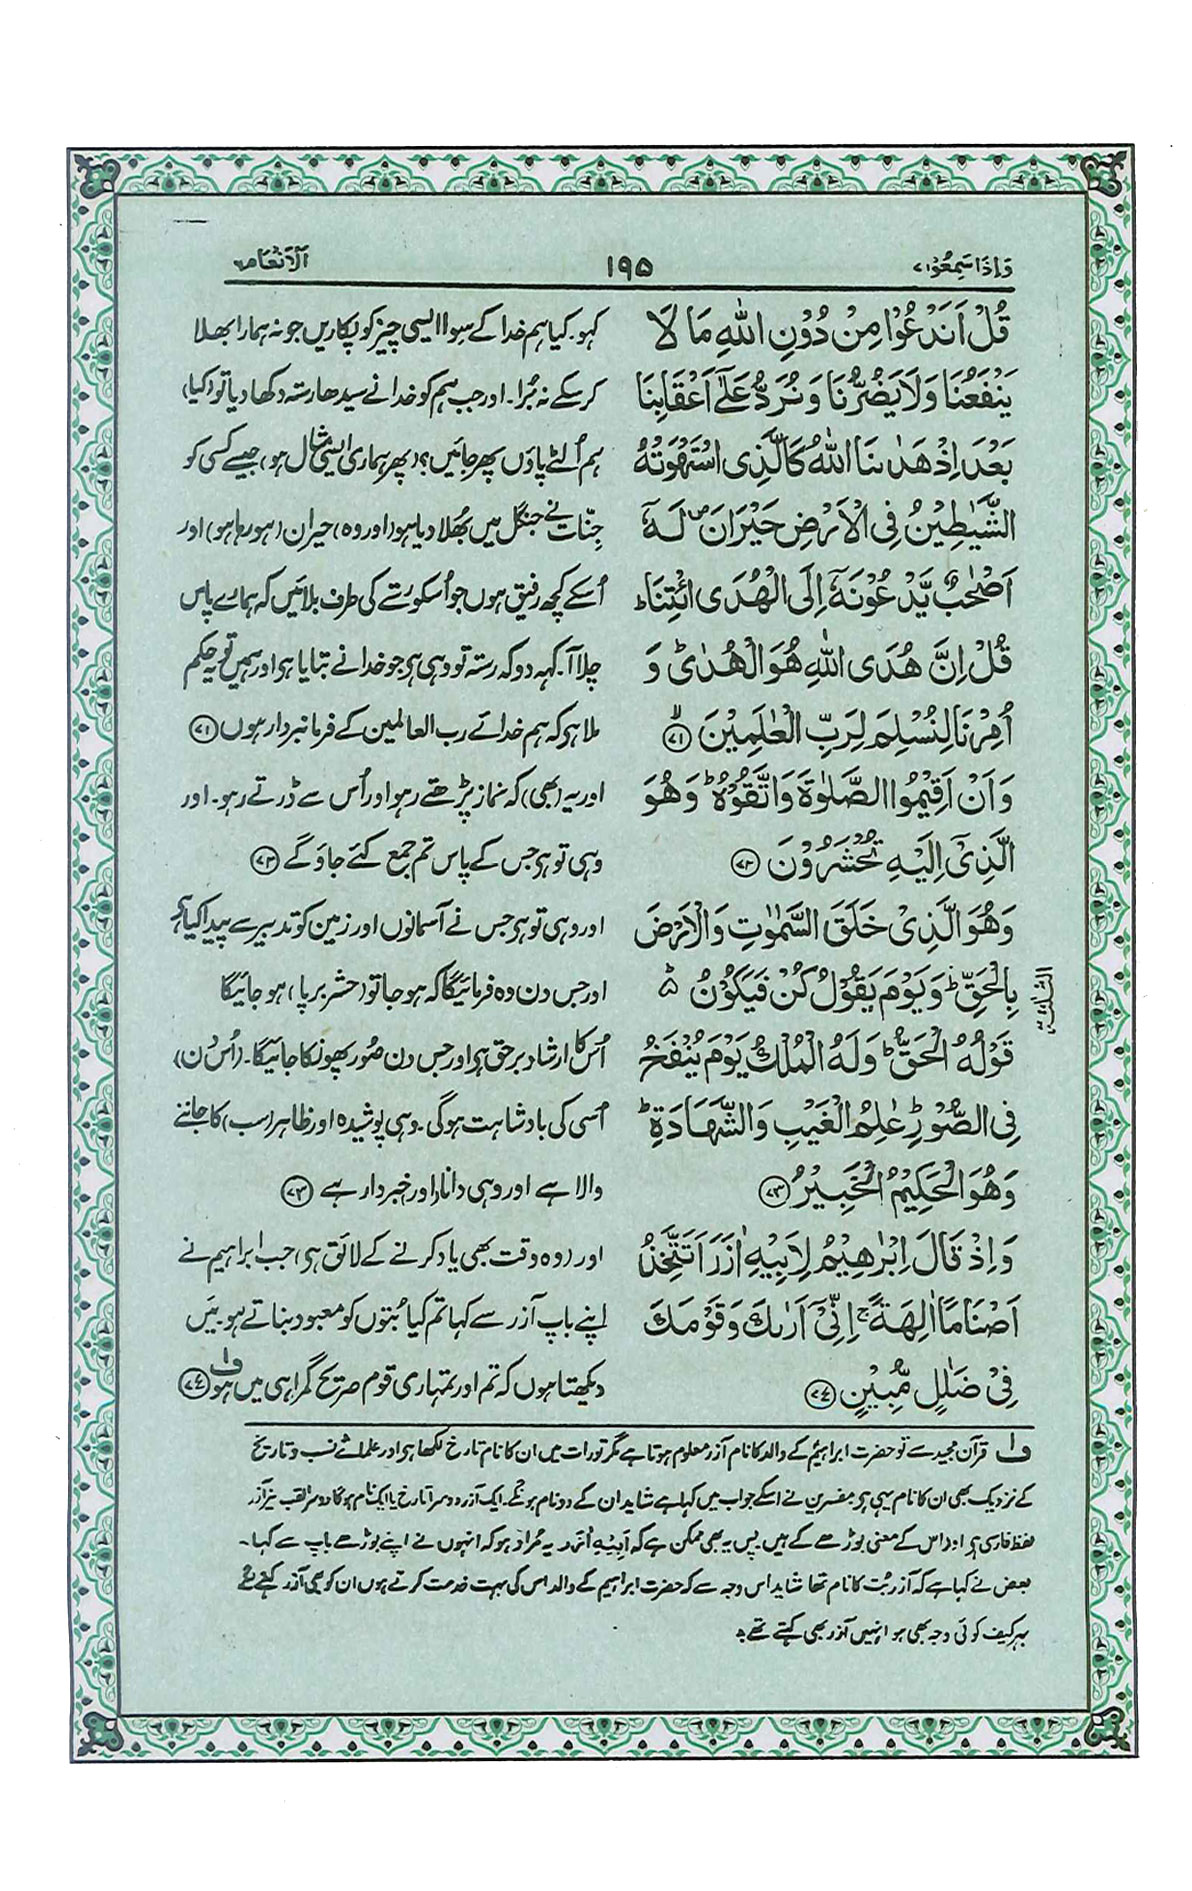 وَاِذَا سَمِعُوْا ۷
۱۹۵
اَلْاَنْعَام ۶
قُلْ اَنَدْعُوْا مِنْ دُوْنِ اللّٰهِ مَا لَا
يَنْفَعُنَا وَلَا يَضُرُّنَا وَنُرَدُّ عَلٰٓى اَعْقَابِنَا
بَعْدَ اِذْ هَدٰىنَا اللّٰهُ كَالَّذِى اسْتَهْوَتْهُ
الشَّيٰطِيْنُ فِى الْاَرْضِ حَيْرَانَ ۪ لَهٗٓ
اَصْحٰبٌ يَّدْعُوْنَهٗٓ اِلَى الْهُدَى ائْتِنَا ؕ
قُلْ اِنَّ هُدَى اللّٰهِ هُوَ الْهُدٰى ؕ وَ
اُمِرْنَا لِنُسْلِمَ لِرَبِّ الْعٰلَمِيْنَ ۙ ﴿۷۱﴾
وَاَنْ اَقِيْمُوا الصَّلٰوةَ وَاتَّقُوْهُ ؕ وَهُوَ
الَّذِىْٓ اِلَيْهِ تُحْشَرُوْنَ ﴿۷۲﴾
وَهُوَ الَّذِىْ خَلَقَ السَّمٰوٰتِ وَالْاَرْضَ
بِالْحَقِّ ؕ وَيَوْمَ يَقُوْلُ كُنْ فَيَكُوْنُ ؕ۬
قَوْلُهُ الْحَقُّ ؕ وَلَهُ الْمُلْكُ يَوْمَ يُنْفَخُ
فِى الصُّوْرِ ؕ عٰلِمُ الْغَيْبِ وَالشَّهَادَةِ ؕ
وَهُوَ الْحَكِيْمُ الْخَبِيْرُ ﴿۷۳﴾
وَاِذْ قَالَ اِبْرٰهِيْمُ لِاَبِيْهِ اٰزَرَ اَتَتَّخِذُ
اَصْنَامًا اٰلِهَةً ۚ اِنِّىْٓ اَرٰىكَ وَقَوْمَكَ
فِىْ ضَلٰلٍ مُّبِيْنٍ ﴿۷۴﴾
کہو۔ کیا ہم خدا کے سوا ایسی چیز کو پکاریں جو نہ ہمارا بھلا
کر سکے نہ بُرا۔ اور جب ہم کو خدا نے سیدھا رستہ دکھا دیا تو (کیا)
ہم اُلٹے پاؤں پھر جائیں؟ (پھر ہماری ایسی مثال ہو) جیسے کسی کو
جِنّات نے جنگل میں بُھلا دیا ہو (اور وہ) حیران (ہو رہا ہو) اور
اُسکے کچھ رفیق ہوں جو اُسکو رستے کی طرف بلائیں کہ ہمارے پاس
چلا آ۔ کہہ دو کہ رستہ تو وہی ہی جو خدا نے بتایا ہی اور ہمیں تو یہ حکم
ملا ہی کہ ہم خدائے رب العالمین کے فرمانبردار ہوں ﴿۷۱﴾
اور یہ (بھی) کہ نماز پڑھتے رہو اور اُس سے ڈرتے رہو۔ اور
وہی تو ہی جس کے پاس تم جمع کئے جاؤ گے ﴿۷۲﴾
اور وہی تو ہی جس نے آسمانوں اور زمین کو تدبیر سے پیدا کیا ہے
اور جس دن وہ فرمائیگا کہ ہو جا تو (حشر برپا) ہو جائیگا
اُس کا ارشاد برحق ہی اور جس دن صُور پھونکا جائیگا۔ (اُس دن)
اُسی کی بادشاہت ہو گی۔ وہی پوشیدہ اور ظاہر (سب) کا جاننے
والا ہے اور وہی دانا اور خبردار ہے ﴿۷۳﴾
اور (وہ وقت بھی یاد کرنے کے لائق ہی) جب ابراہیم نے
اپنے باپ آزر سے کہا تم کیا بُتوں کو معبود بناتے ہو۔ میں
دیکھتا ہوں کہ تم اور تمہاری قوم صریح گمراہی میں ہو ف۱ ﴿۷۴﴾
ف۱ قرآن مجید سے تو حضرت ابراہیمؑ کے والد کا نام آزر معلوم ہوتا ہے مگر تورات میں ان کا نام تارخ لکھا ہی اور علمائے نسب و تاریخ
کے نزدیک بھی ان کا نام یہی ہی مفسرین نے اسکے جواب میں کہا ہے شاید ان کے دو نام ہونگے۔ ایک آزر دوسرا تارخ یا ایک نام ہوگا دوسرا لقب نیز آزر
لفظ فارسی ہی اور اس کے معنی بوڑھے کے ہیں پس یہ بھی ممکن ہے کہ اَبِیْهِ اٰزَرَ سے یہ مُراد ہو کہ انہوں نے اپنے بوڑھے باپ سے کہا۔
بعض نے کہا ہے کہ آزر بُت کا نام تھا شاید اس وجہ سے کہ حضرت ابراہیم کے والد اس کی بہت خدمت کرتے ہوں ان کو بھی آزر کہتے تھے
بہر کیف کوئی وجہ بھی ہو انہیں آزر بھی کہتے تھے ؞